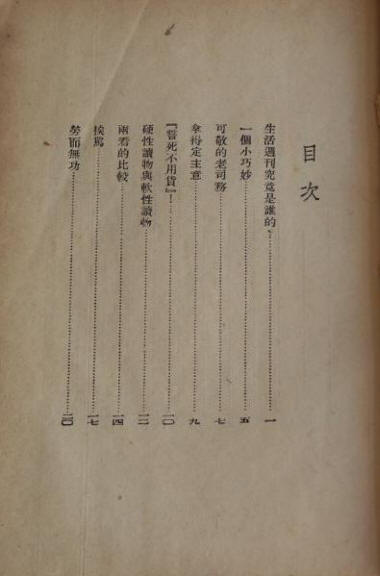 目次
生活週刊究竟是誰的……一
一個小巧妙……五
可敬的老司務……七
拿得定主意……九
『誓死不用貨』！……一〇
硬性讀物與軟性讀物……一二
兩看的比較……一四
挨罵……一七
勞而無功……二〇